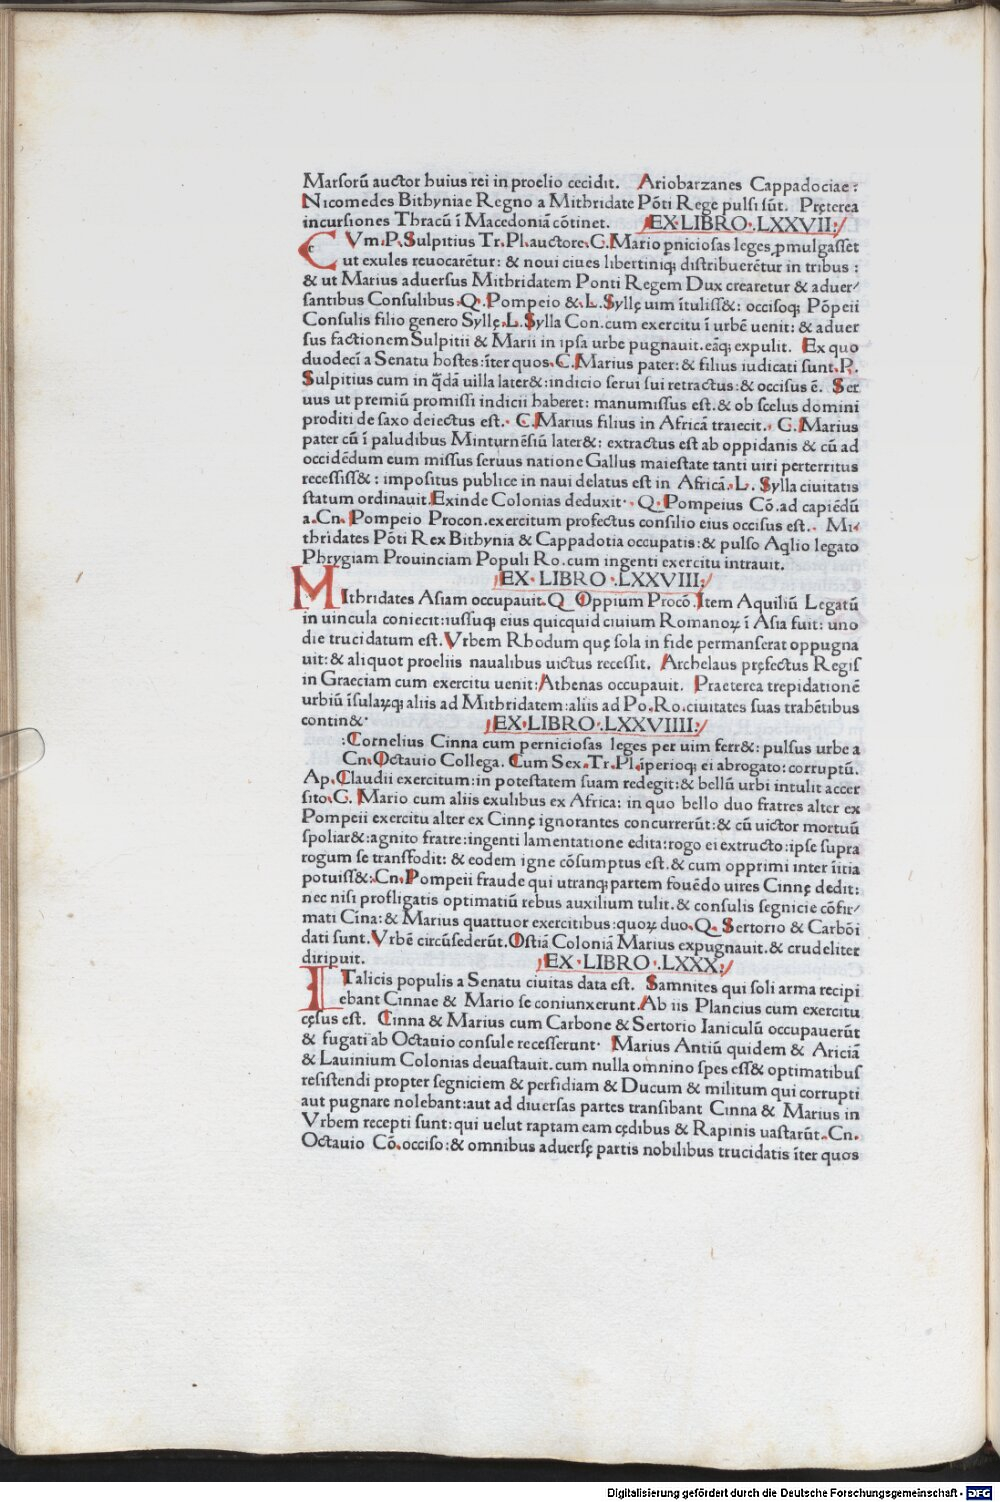 Marsorū auctor huius rei in proelio cecidit. Ariobarzanes Cappadociae:
Nicomedes Bithyniae Regno a Mithridate Pōti Rege pulsi sūt. Pręterea
incursiones Thracū ī Macedoniā cōtinet. EX·LIBRO·LXXVII:
CVm·P·Sulpitius Tr·Pl·auctore·C·Mario ꝑniciosas leges ꝓmulgasset
ut exules reuocarētur: & noui ciues libertiniqꝫ distribuerētur in tribus:
& ut Marius aduersus Mithridatem Ponti Regem Dux crearetur & aduer/
santibus Consulibus·Q·Pompeio &·L·Syllę uim ītuliss&: occisoqꝫ Pōpeii
Consulis filio genero Syllę·L·Sylla Con.cum exercitu ī urbē uenit: & aduer
sus factionem Sulpitii & Marii in ipsa urbe pugnauit.eāqꝫ expulit. Ex quo
duodecī a Senatu hostes:īter quos·C·Marius pater: & filius iudicati sunt·P·
Sulpitius cum in q̄dā uilla later&:indicio serui sui retractus:& occisus ē. Ser
uus ut premiū promissi indicii haberet: manumissus est.& ob scelus domini
proditi de saxo deiectus est.· C·Marius filius in Africā traiecit.· C·Marius
pater cū ī paludibus Minturnēsiū later&: extractus est ab oppidanis & cū ad
occidēdum eum missus seruus natione Gallus maiestate tanti uiri perterritus
recessiss&: impositus publice in naui delatus est in Africā.·L. Sylla ciuitatis
statum ordinauit.Exinde Colonias deduxit··Q·Pompeius Cō.ad capiēdū
a·Cn·Pompeio Procon.exercitum profectus consilio eius occisus est.· Mi·
thridates Pōti Rex Bithynia & Cappadotia occupatis:& pulso Aqlio legato
Phrygiam Prouinciam Populi Ro.cum ingenti exercitu intrauit.
EX·LIBRO·LXXVIII:
MIthridates Asiam occupauit.Q Oppium Procō.Item Aquiliū Legatū
in uincula coniecit:iussuqꝫ eius quicquid ciuium Romanoꝝ ī Asia fuit: uno
die trucidatum est.Vrbem Rhodum quę sola in fide permanserat oppugna
uit:& aliquot proeliis naualibus uictus recessit. Archelaus pręfectus Regis
in Graeciam cum exercitu uenit:Athenas occupauit. Praeterea trepidationē
urbiū īsulaꝝqꝫ aliis ad Mithridatem:aliis ad Po.Ro.ciuitates suas trahētibus
contin&· EX·LIBRO·LXXVIIII:
:Cornelius Cinna cum perniciosas leges per uim ferr&: pulsus urbe a
Cn·Octauio Collega. Cum Sex·Tr·Pl·īperioqꝫ ei abrogato:corruptū.
Ap.Claudii exercitum:in potestatem suam redegit:& bellū urbi intulit accer
sito·C. Mario cum aliis exulibus ex Africa: in quo bello duo fratres alter ex
Pompeii exercitu alter ex Cinnę ignorantes concurrerūt:& cū uictor mortuū
spoliar&:agnito fratre:ingenti lamentatione edita:rogo ei extructo:ipse supra
rogum se transfodit: & eodem igne cōsumptus est.& cum opprimi inter īitia
potuiss&:Cn·Pompeii fraude qui utranqꝫ partem fouēdo uires Cinnę dedit:
nec nisi profligatis optimatiū rebus auxilium tulit.& consulis segnicie cōfir/
mati Cīna:& Marius quattuor exercitibus:quoꝝ duo·Q·Sertorio & Carbōi
dati sunt.Vrbē circūsederūt.Ostiā Coloniā Marius expugnauit.& crudeliter
diripuit. EX·LIBRO·LXXX:
ITalicis populis a Senatu ciuitas data est. Samnites qui soli arma recipi
ebant Cinnae & Mario se coniunxerunt.Ab iis Plancius cum exercitu
cęsus est. Cinna & Marius cum Carbone & Sertorio Ianiculū occupauerūt
& fugati ab Octauio consule recesserunt· Marius Antiū quidem & Ariciā
& Lauinium Colonias deuastauit.cum nulla omnino spes ess& optimatibus
resistendi propter segniciem & perfidiam & Ducum & militum qui corrupti
aut pugnare nolebant:aut ad diuersas partes transibant Cinna & Marius in
Vrbem recepti sunt:qui uelut raptam eam cędibus & Rapinis uastarūt.·Cn·
Octauio Cō.occiso:& omnibus aduersę partis nobilibus trucidatis īter quos
Digitalisierung gefördert durch die Deutsche Forschungsgemeinschaft - DFG